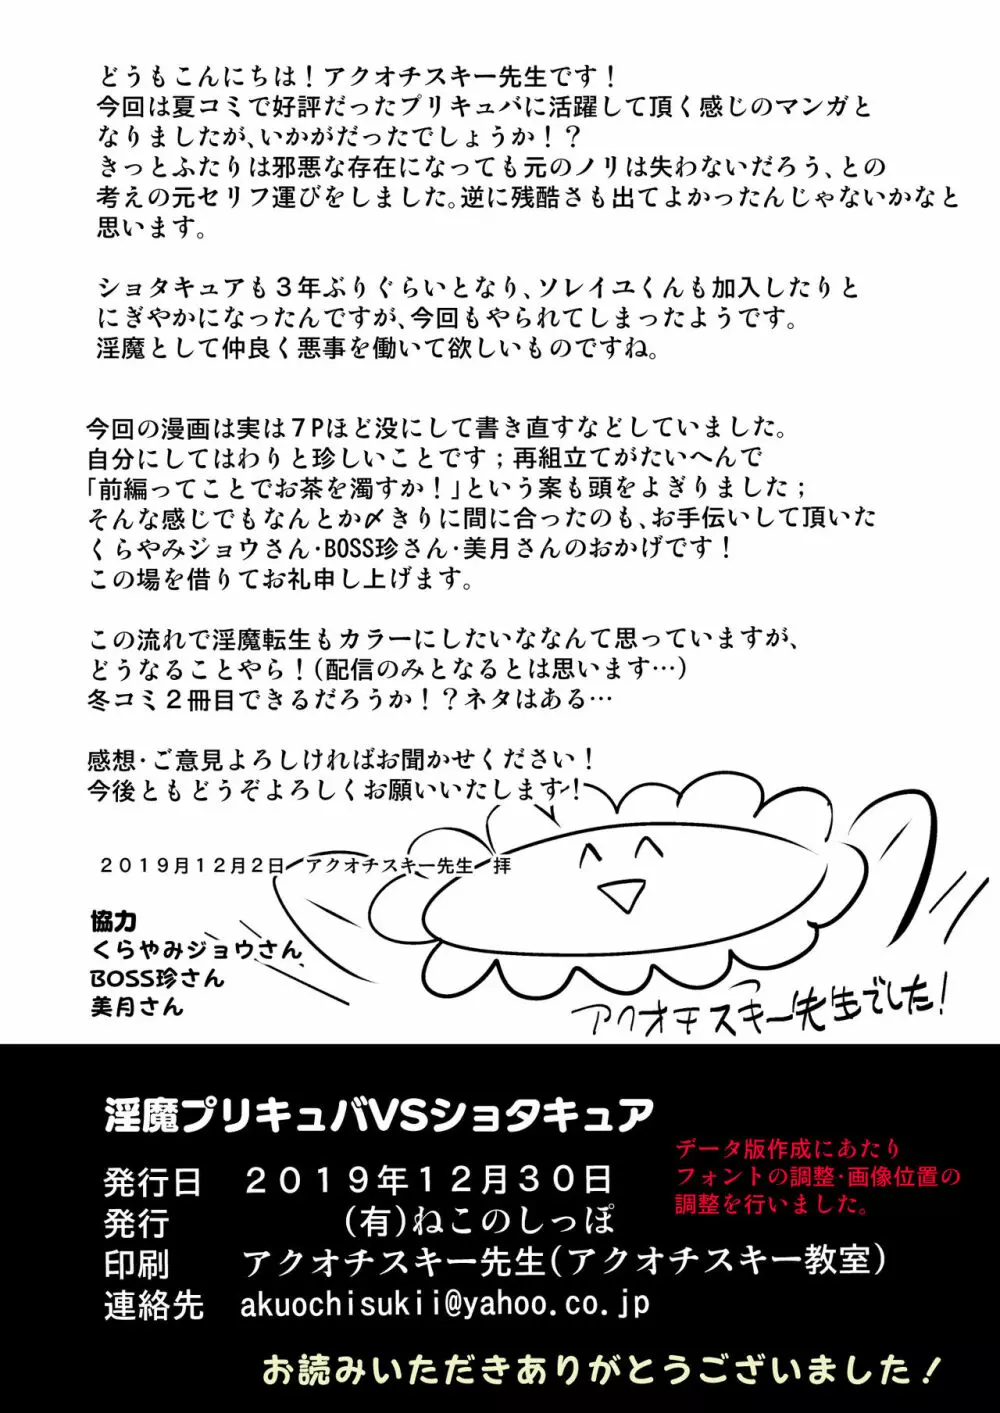 どうもこんにちは！アクオチスキー先生です！
今回は夏コミで好評だったプリキュバに活躍して頂く感じのマンガと
なりましたが､いかがだったでしょうか！？
きっとふたりは邪悪な存在になっても元のノリは失わないだろう､との
考えの元セリフ運びをしました｡逆に残酷さも出てよかったんじゃないかなと
思います｡
ショタキュアも３年ぶりぐらいとなり､ソレイユくんも加入したりと
にぎやかになったんですが､今回もやられてしまったようです｡
淫魔として仲良く悪事を働いて欲しいものですね｡
今回の漫画は実は７Pほど没にして書き直すなどしていました｡
自分にしてはわりと珍しいことです；再組立てがたいへんで
｢前編ってことでお茶を濁すか！｣という案も頭をよぎりました；
そんな感じでもなんとか〆きりに間に合ったのも､お手伝いして頂いた
くらやみジョウさん･BOSS珍さん･美月さんのおかげです！
この場を借りてお礼申し上げます｡
この流れで淫魔転生もカラーにしたいななんて思っていますが､
どうなることやら！(配信のみとなるとは思います…)
冬コミ２冊目できるだろうか！？ネタはある…
感想･ご意見よろしければお聞かせください！
今後ともどうぞよろしくお願いいたします！
２０１９月１２月２日　アクオチスキー先生　拝
協力
くらやみジョウさん
BOSS珍さん
美月さん
アクオチスキー先生でした！
淫魔プリキュバVSショタキュア
データ版作成にあたり
フォントの調整･画像位置の
調整を行いました｡
発行日　２０１９年１２月３０日
発行　(有)ねこのしっぽ
印刷　アクオチスキー先生(アクオチスキー教室)
連絡先　akuochisukii@yahoo.co.jp
お読みいただきありがとうございました！